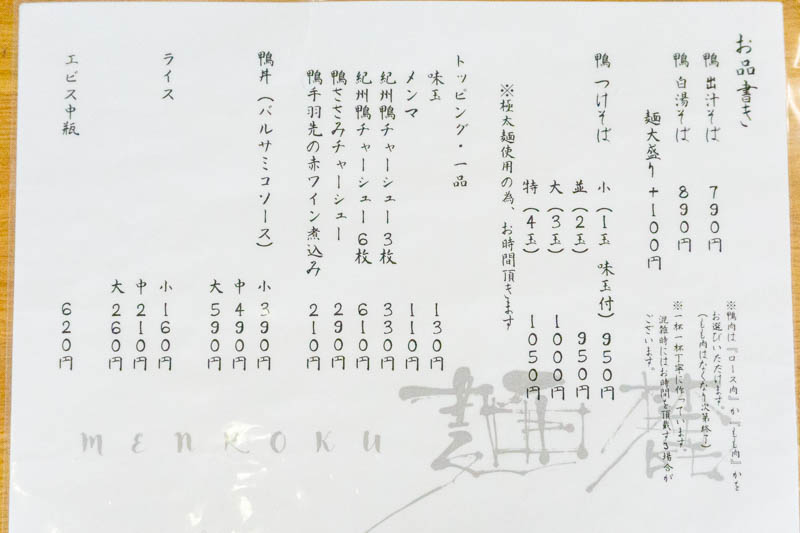 お品書き
鴨 出汁そば 790円
鴨 白湯そば 890円
麺大盛り +100円
※鴨肉は『ロース肉』か『もも肉』かを
お選びいただけます。
(もも肉はなくなり次第終了)
※一杯一杯丁寧に作っています。
混雑時にはお時間を頂戴する場合が
ございます。
鴨 つけそば 小(1玉 味玉付)950円
並(2玉) 950円
大(3玉) 1000円
特(4玉) 1050円
※極太麺使用の為、お時間頂きます
トッピング・一品
味玉 130円
メンマ 110円
紀州鴨チャーシュー3枚 330円
紀州鴨チャーシュー6枚 610円
鴨ささみチャーシュー 290円
鴨手羽先の赤ワイン煮込み 210円
鴨丼(バルサミコソース) 小 390円
中 490円
大 590円
ライス 小 160円
中 210円
大 260円
エビス中瓶 620円
MENROKU